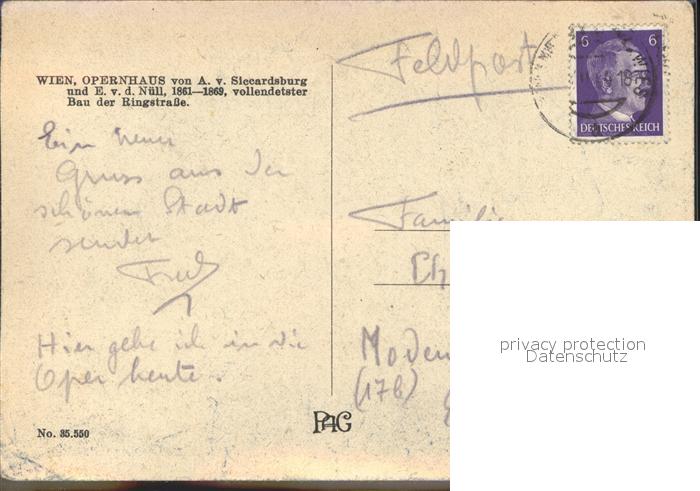 WIEN, OPERNHAUS von A. v. Siccardsburg
und E. v. d. Nüll, 1861—1869, vollendetster
Bau der Ringstraße.
Ein neuer
Gruss aus der
schönen Stadt
sendet
Fred
Hier gehe ich in die
Oper heute.
No. 35.550
PAG
Feldpost
6 6
DEUTSCHES REICH
Familie
Ch
Moden
(17b)
privacy protection
Datenschutz